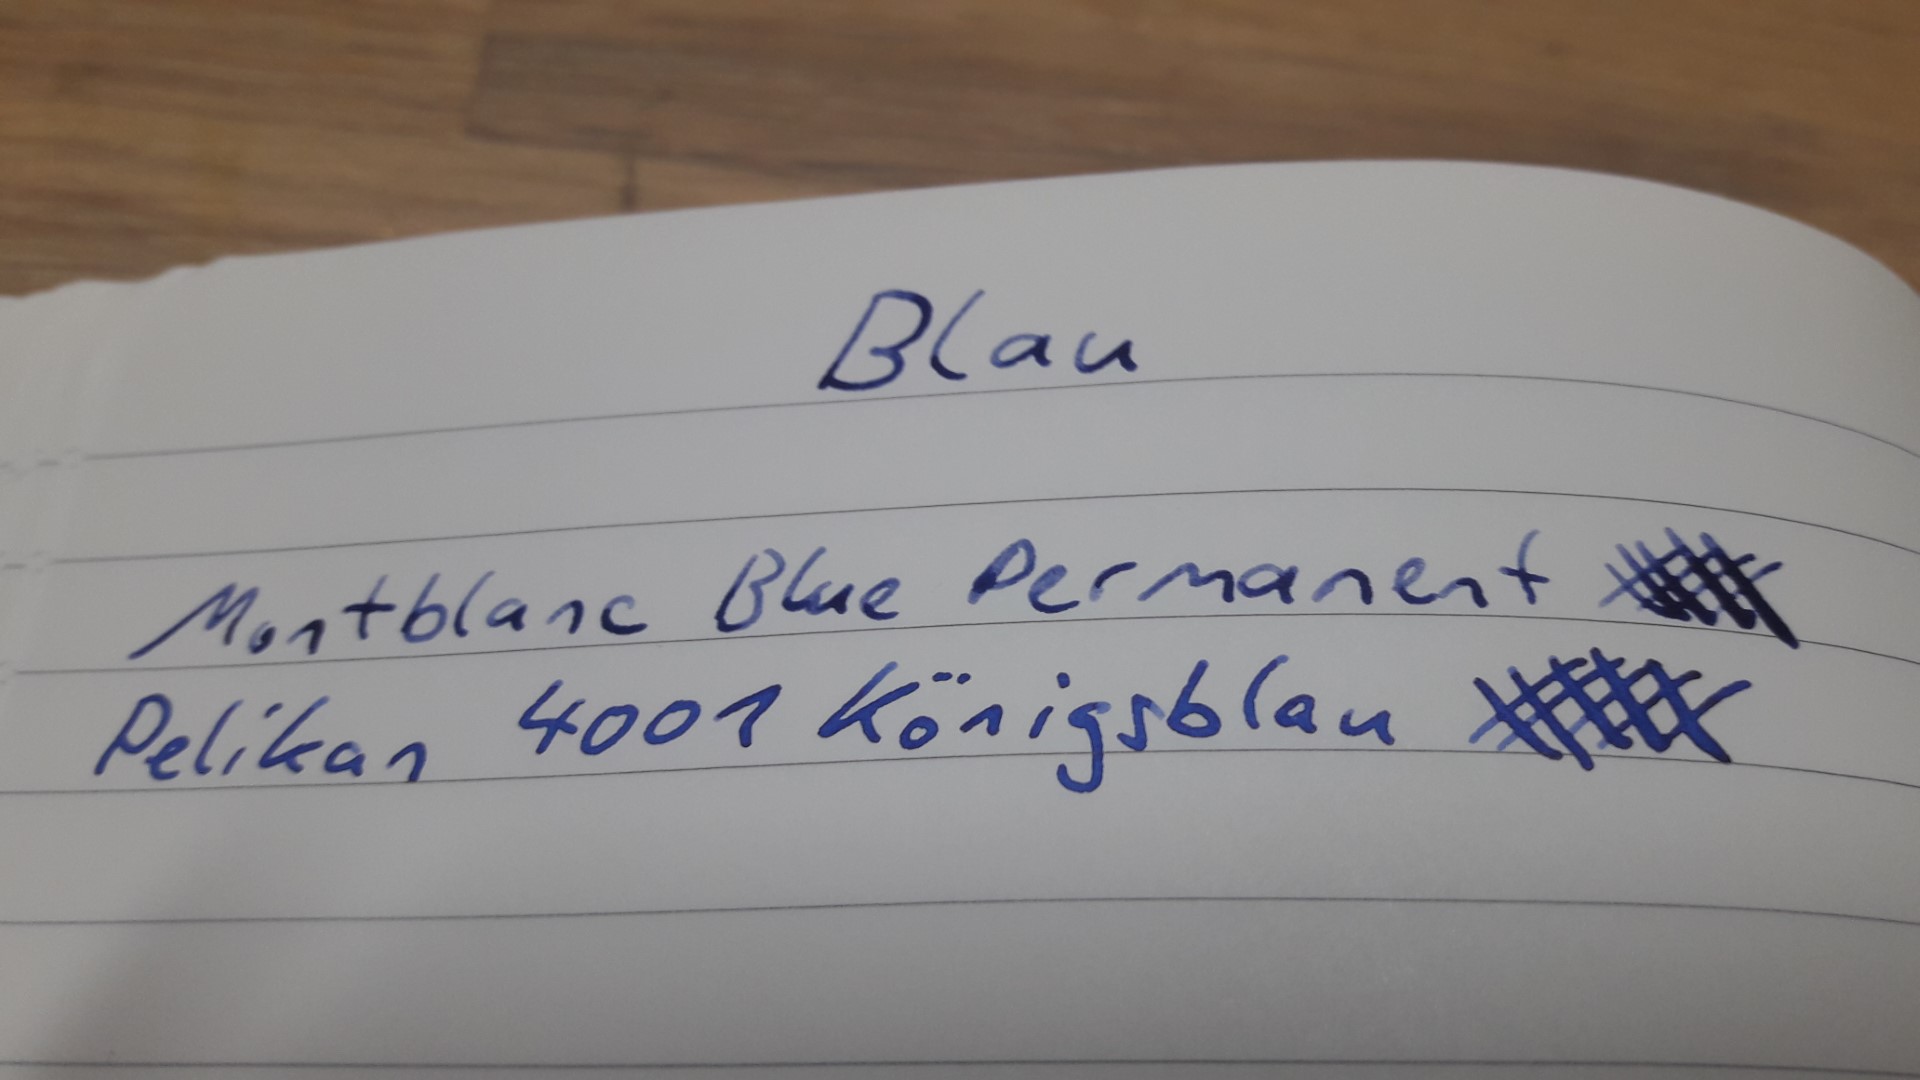 Blau
Montblanc Blue Permanent
Pelikan 4001 Königsblau